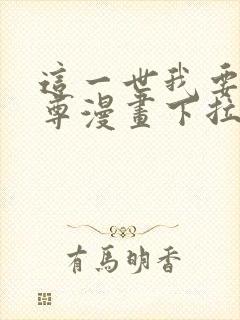 這一世我要
尊漫畫下拉
有馬明香